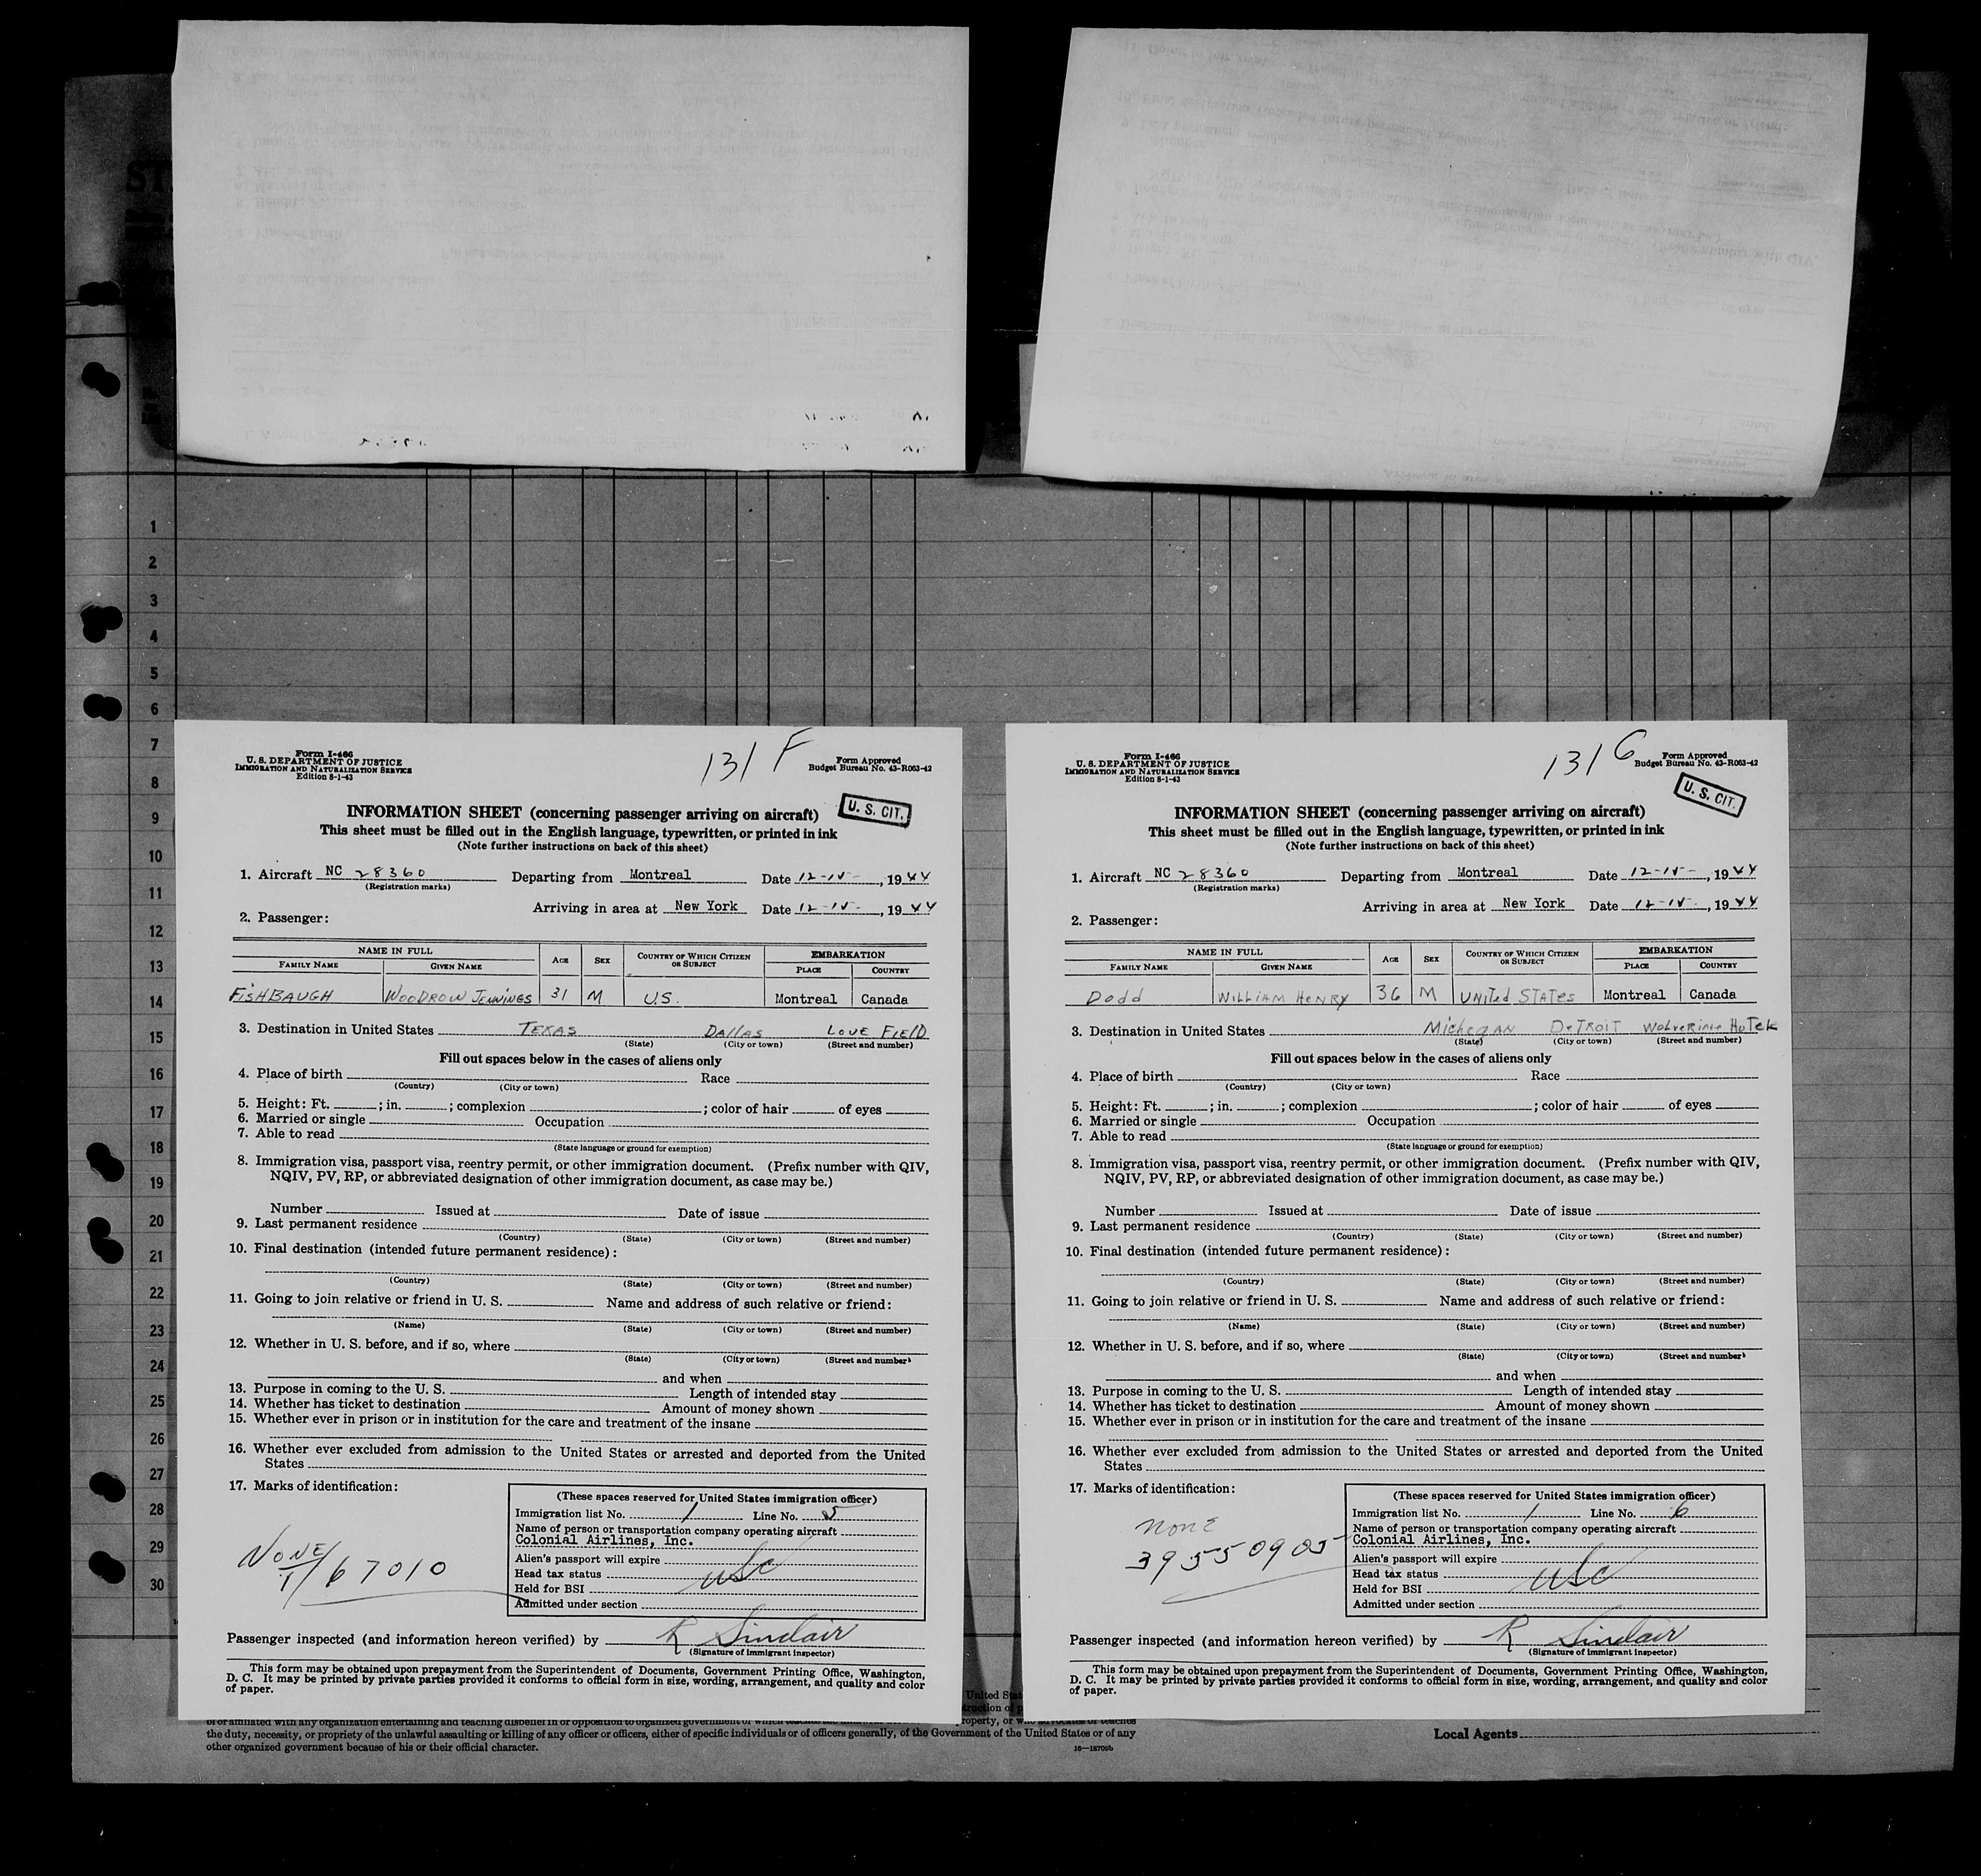 1
2
3
4
5
6
7
8
9
10
11
12
13
14
15
16
17
18
19
20
21
22
23
24
25
26
27
28
29
30
Form I-466
U. S. DEPARTMENT OF JUSTICE
IMMIGRATION AND NATURALIZATION SERVICE
Edition 8-1-43
131 F
Form Approved
Budget Bureau No. 43-R063-42
U. S. CIT.
INFORMATION SHEET (concerning passenger arriving on aircraft)
This sheet must be filled out in the English language, typewritten, or printed in ink
(Note further instructions on back of this sheet)
1. Aircraft NC 28360 Departing from Montreal Date 12-15-, 1944
(Registration marks)
Arriving in area at New York Date 12-15-, 1944
2. Passenger:
NAME IN FULL AGE SEX COUNTRY OF WHICH CITIZEN OR SUBJECT EMBARKATION
FAMILY NAME GIVEN NAME PLACE COUNTRY
FISHBAUGH WOODROW JENNINGS 31 M U.S. Montreal Canada
3. Destination in United States TEXAS DALLAS LOVE FIELD
(State) (City or town) (Street and number)
Fill out spaces below in the cases of aliens only
4. Place of birth Race
(Country) (City or town)
5. Height: Ft. ; in. ; complexion ; color of hair of eyes
6. Married or single Occupation
7. Able to read
(State language or ground for exemption)
8. Immigration visa, passport visa, reentry permit, or other immigration document. (Prefix number with QIV,
NQIV, PV, RP, or abbreviated designation of other immigration document, as case may be.)
Number Issued at Date of issue
9. Last permanent residence
(Country) (State) (City or town) (Street and number)
10. Final destination (intended future permanent residence):
(Country) (State) (City or town) (Street and number)
11. Going to join relative or friend in U. S. Name and address of such relative or friend:
(Name) (State) (City or town) (Street and number)
12. Whether in U. S. before, and if so, where
(State) (City or town) (Street and number)
and when
13. Purpose in coming to the U. S. Length of intended stay
14. Whether has ticket to destination Amount of money shown
15. Whether ever in prison or in institution for the care and treatment of the insane
16. Whether ever excluded from admission to the United States or arrested and deported from the United
States
17. Marks of identification:
NONE
T/67010
(These spaces reserved for United States immigration officer)
Immigration list No. 1 Line No. 5
Name of person or transportation company operating aircraft
Colonial Airlines, Inc.
Alien's passport will expire
Head tax status USC
Held for BSI
Admitted under section
Passenger inspected (and information hereon verified) by R Sinclair
(Signature of immigrant inspector)
This form may be obtained upon prepayment from the Superintendent of Documents, Government Printing Office, Washington,
D. C. It may be printed by private parties provided it conforms to official form in size, wording, arrangement, and quality and color
of paper.
Form I-466
U. S. DEPARTMENT OF JUSTICE
IMMIGRATION AND NATURALIZATION SERVICE
Edition 8-1-43
131 G
Form Approved
Budget Bureau No. 43-R063-42
U. S. CIT.
INFORMATION SHEET (concerning passenger arriving on aircraft)
This sheet must be filled out in the English language, typewritten, or printed in ink
(Note further instructions on back of this sheet)
1. Aircraft NC 28360 Departing from Montreal Date 12-15-, 1944
(Registration marks)
Arriving in area at New York Date 12-15-, 1944
2. Passenger:
NAME IN FULL AGE SEX COUNTRY OF WHICH CITIZEN OR SUBJECT EMBARKATION
FAMILY NAME GIVEN NAME PLACE COUNTRY
Dodd WILLIAM HENRY 36 M UNITED STATES Montreal Canada
3. Destination in United States Michegan DETROIT Wolverine Hotek
(State) (City or town) (Street and number)
Fill out spaces below in the cases of aliens only
4. Place of birth Race
(Country) (City or town)
5. Height: Ft. ; in. ; complexion ; color of hair of eyes
6. Married or single Occupation
7. Able to read
(State language or ground for exemption)
8. Immigration visa, passport visa, reentry permit, or other immigration document. (Prefix number with QIV,
NQIV, PV, RP, or abbreviated designation of other immigration document, as case may be.)
Number Issued at Date of issue
9. Last permanent residence
(Country) (State) (City or town) (Street and number)
10. Final destination (intended future permanent residence):
(Country) (State) (City or town) (Street and number)
11. Going to join relative or friend in U. S. Name and address of such relative or friend:
(Name) (State) (City or town) (Street and number)
12. Whether in U. S. before, and if so, where
(State) (City or town) (Street and number)
and when
13. Purpose in coming to the U. S. Length of intended stay
14. Whether has ticket to destination Amount of money shown
15. Whether ever in prison or in institution for the care and treatment of the insane
16. Whether ever excluded from admission to the United States or arrested and deported from the United
States
17. Marks of identification:
none
39550905
(These spaces reserved for United States immigration officer)
Immigration list No. 1 Line No. 6
Name of person or transportation company operating aircraft
Colonial Airlines, Inc.
Alien's passport will expire
Head tax status USC
Held for BSI
Admitted under section
Passenger inspected (and information hereon verified) by R Sinclair
(Signature of immigrant inspector)
This form may be obtained upon prepayment from the Superintendent of Documents, Government Printing Office, Washington,
D. C. It may be printed by private parties provided it conforms to official form in size, wording, arrangement, and quality and color
of paper.
the duty, necessity, or propriety of the unlawful assaulting or killing of any officer or officers, either of specific individuals or of officers generally, of the Government of the United States or of any
other organized government because of his or their official character.
16—18709b
Local Agents